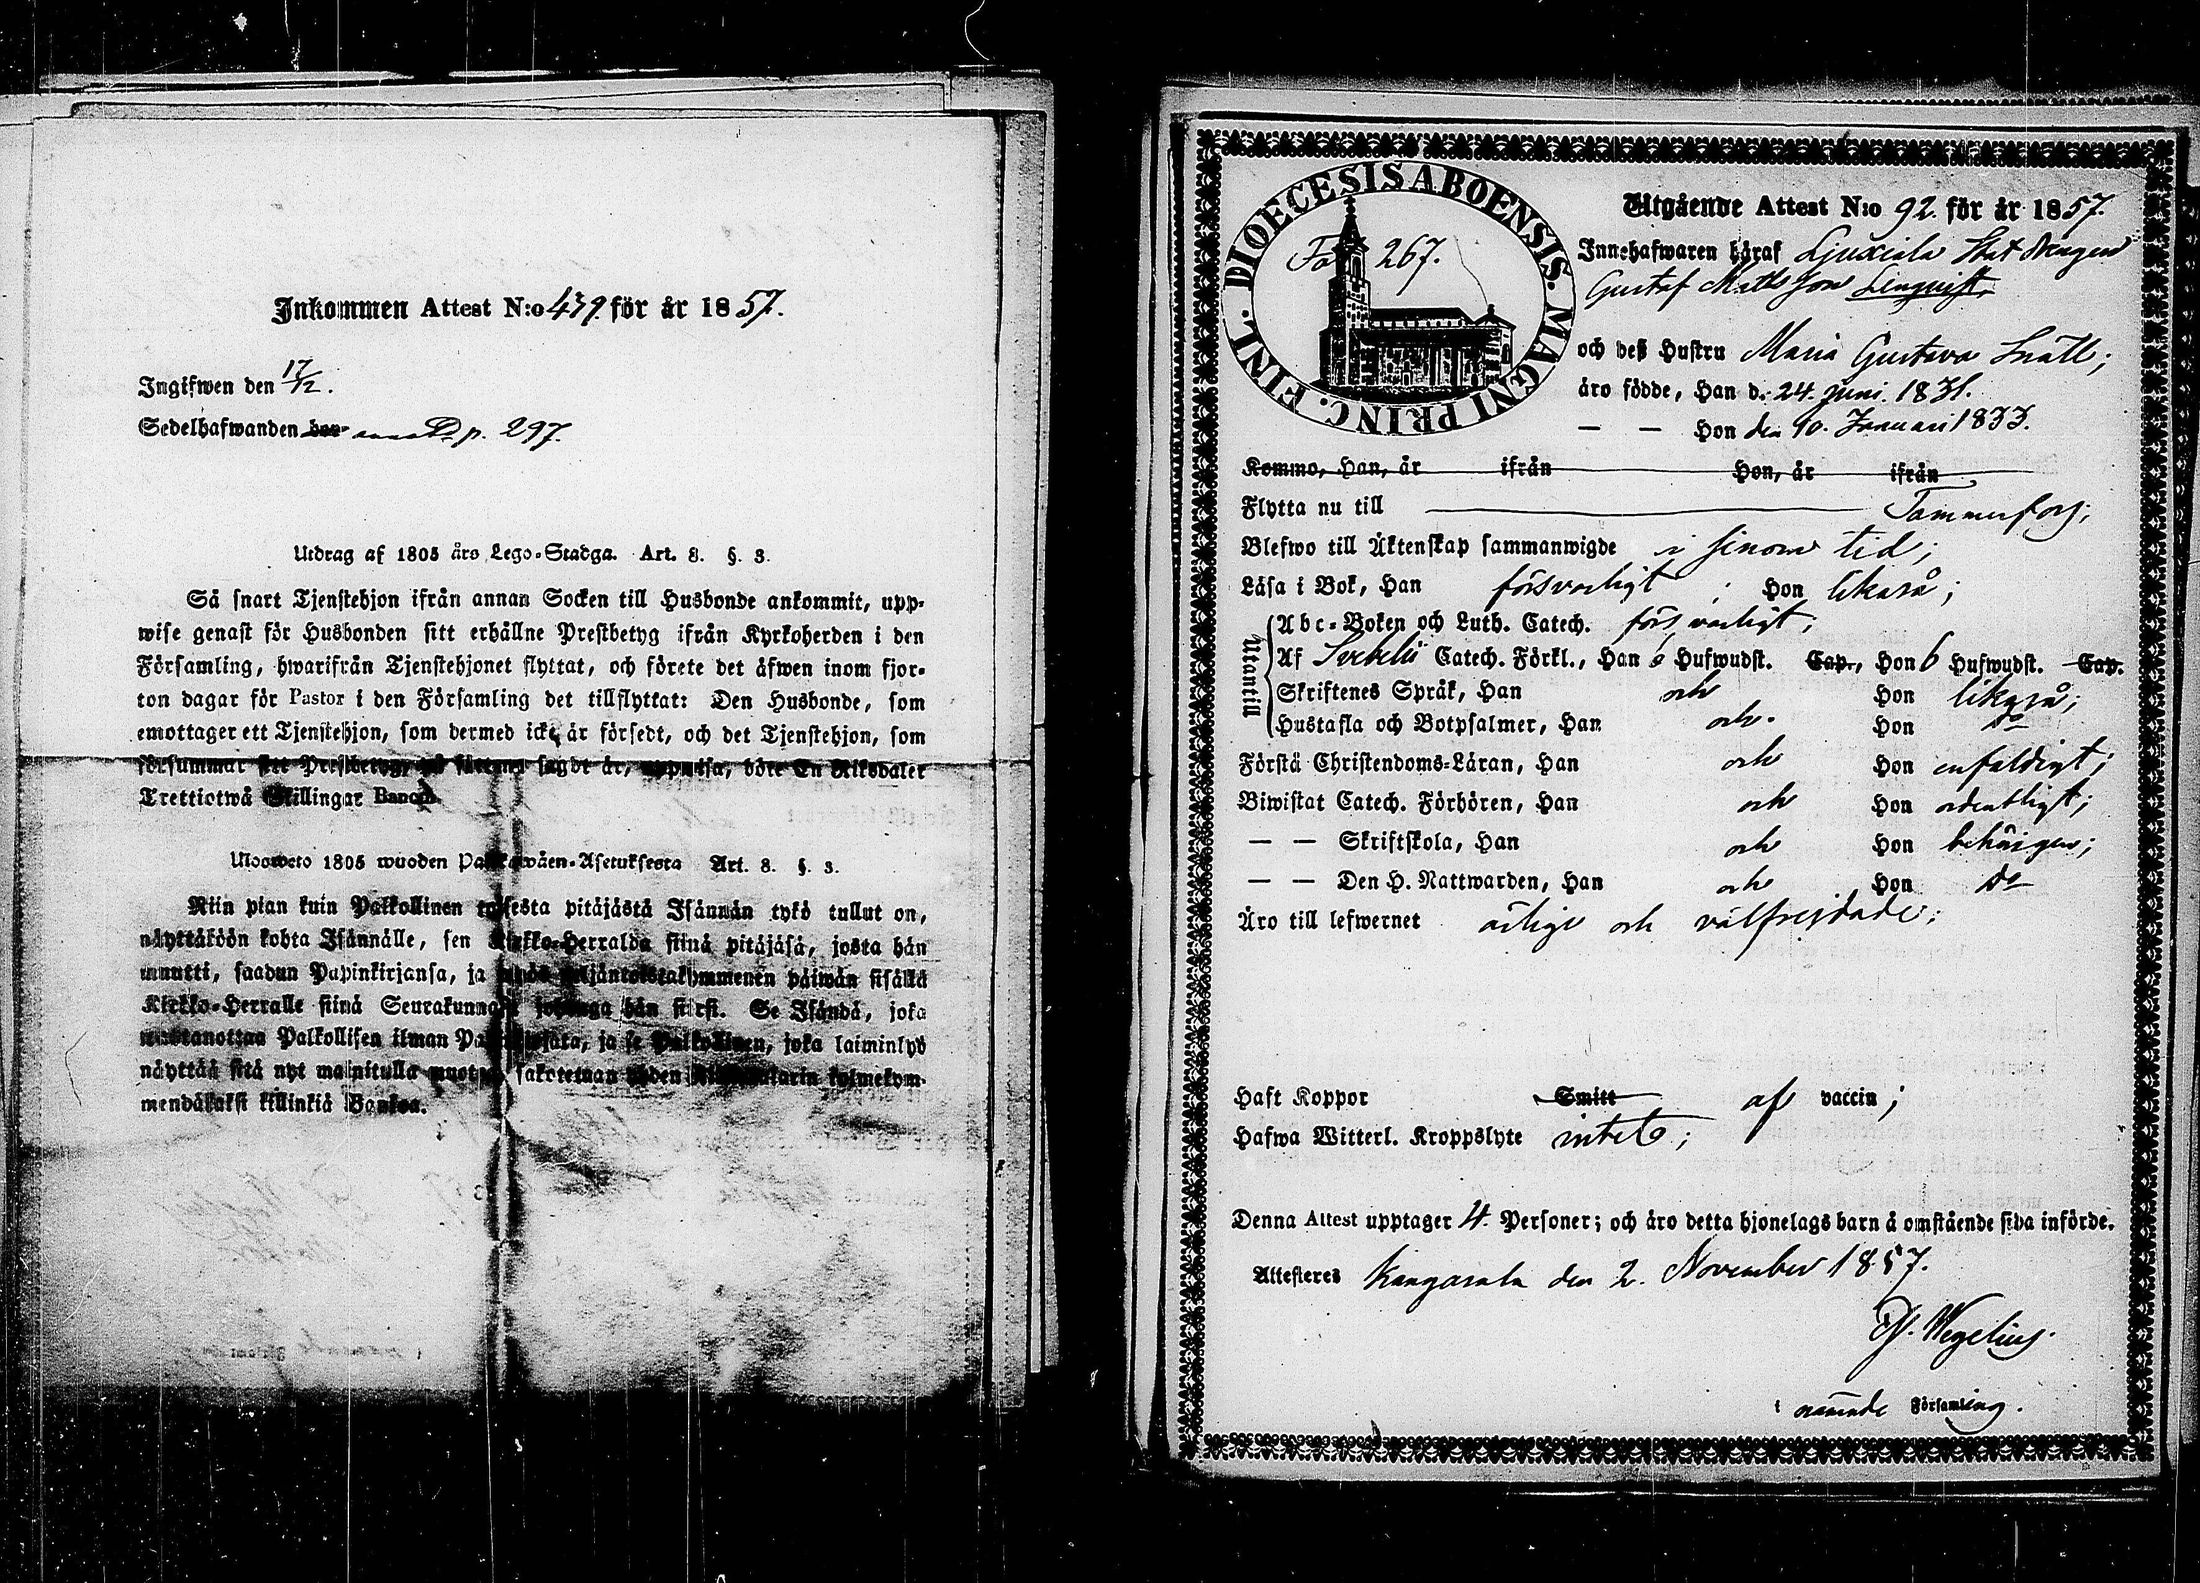 Inkommen Attest N:o 439. för år 1857.
Ingifwen den 17/12.
Sedelhafwanden p. 297.
Utdrag af 1805 års Lego-Stadga. Art. 8. §. 3.
Så snart Tjenstehjon ifrån annan Socken till Husbonde ankommit, upp-
wise genast för Husbonden sitt erhållne Prestbetyg ifrån Kyrkoherden i den
Församling, hwarifrån Tjenstehjonet flyttat, och förete det äfwen inom fjor-
ton dagar för Pastor i den Församling det tillflyttat: Den Husbonde, som
emottager ett Tjenstehjon, som dermed icke är försedt, och det Tjenstehjon, som
försummar sitt Prestbetyg, på sätt som sagdt är, uppwisa, böte En Riksdaler
Trettiotwå Skillingar Banco.
Ulosweto 1805 wuoden Palkawäen-Asetuksesta Art. 8. §. 3.
Niin pian kuin Palkollinen toisesta pitäjästä Isännän tykö tullut on,
näyttäköön kohta Isännälle, sen Kirkko-Herralda siinä pitäjäsä, josta hän
muutti, saadun Papinkirjansa, ja neljäntoistakymmenen päiwän sisällä
Kirkko-Herralle siinä Seurakunnasa johonga hän siirsi. Se Isändä, joka
wastanottaa Palkollisen ilman Papinkirjata, ja se Palkollinen, joka laiminlyö
näyttää sitä nyt mainitulla muotoa, sakotetaan yhden Riksdalarin kolmekym-
mendäkaksi killinkiä Bankoa.
DIOECESIS ABOENSIS. MAGNI PRINC. FINL.
Fol 267.
Utgående Attest N:o 92. för år 1857.
Innehafwaren häraf Ljuxiala Stat Drengen
Gustaf Mattsson Lengvist,
och deß Hustru Maria Gustava Snäll;
äro födde, Han d. 24. Juni. 1831.
— — Hon den 10. Januari 1833.
Kommo, Han, år ifrån Hon, år ifrån
Flytta nu till Tammerfors;
Blefwo till Äktenskap sammanwigde i sinom tid;
Läsa i Bok, Han försvarligt; Hon likaså;
Utantill
Abc-Boken och Luth. Catech. försvarligt;
Af Svebelii Catech. Förkl., Han 6 Hufwudst. Cap., Hon 6 Hufwudst. Cap.
Skriftenes Språk, Han och Hon likaså;
Hustafla och Botpsalmer, Han och Hon do
Förstå Christendoms-Läran, Han och Hon enfaldigt;
Biwistat Catech. Förhören, Han och Hon ordentligt;
— — Skriftskola, Han och Hon behörigen;
— — Den H. Nattwarden, Han och Hon do
Äro till lefwernet ärlige och välfrejdade;
Haft Koppor Smitt af vaccin;
Hafwa Witterl. Kroppslyte intet;
Denna Attest upptager 4. Personer; och äro detta hjonelags barn å omstående sida införde.
Attesteres Kangasala den 2. November 1857.
Wegelius.
i nämnde Församling.